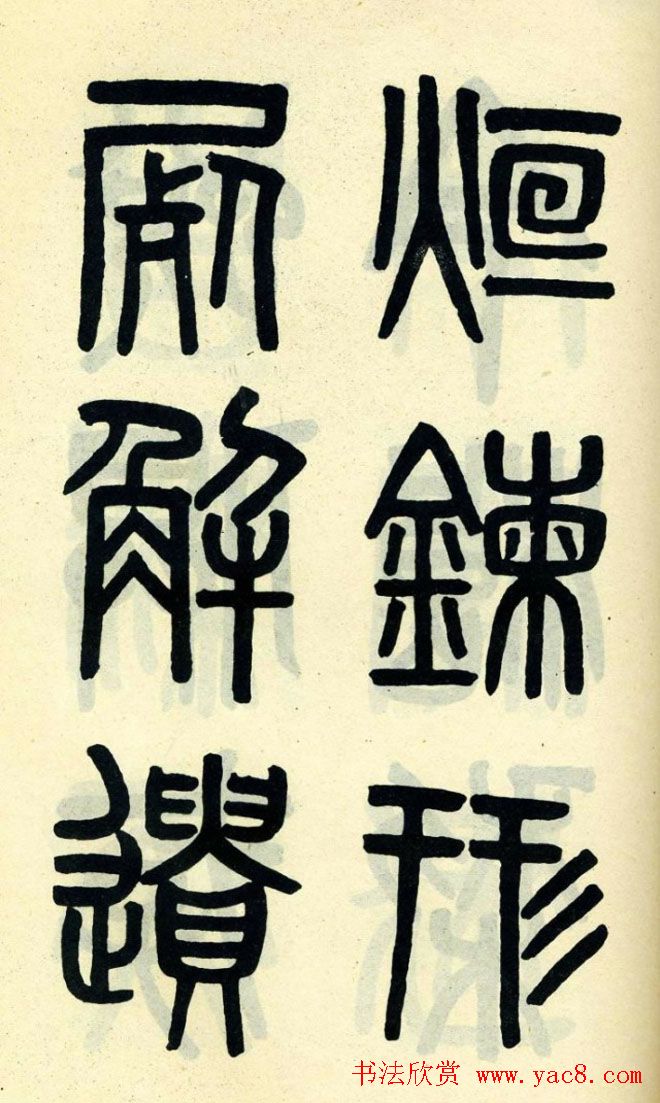 烜鍊形
屍解遺
书法欣赏 www.yac8.com